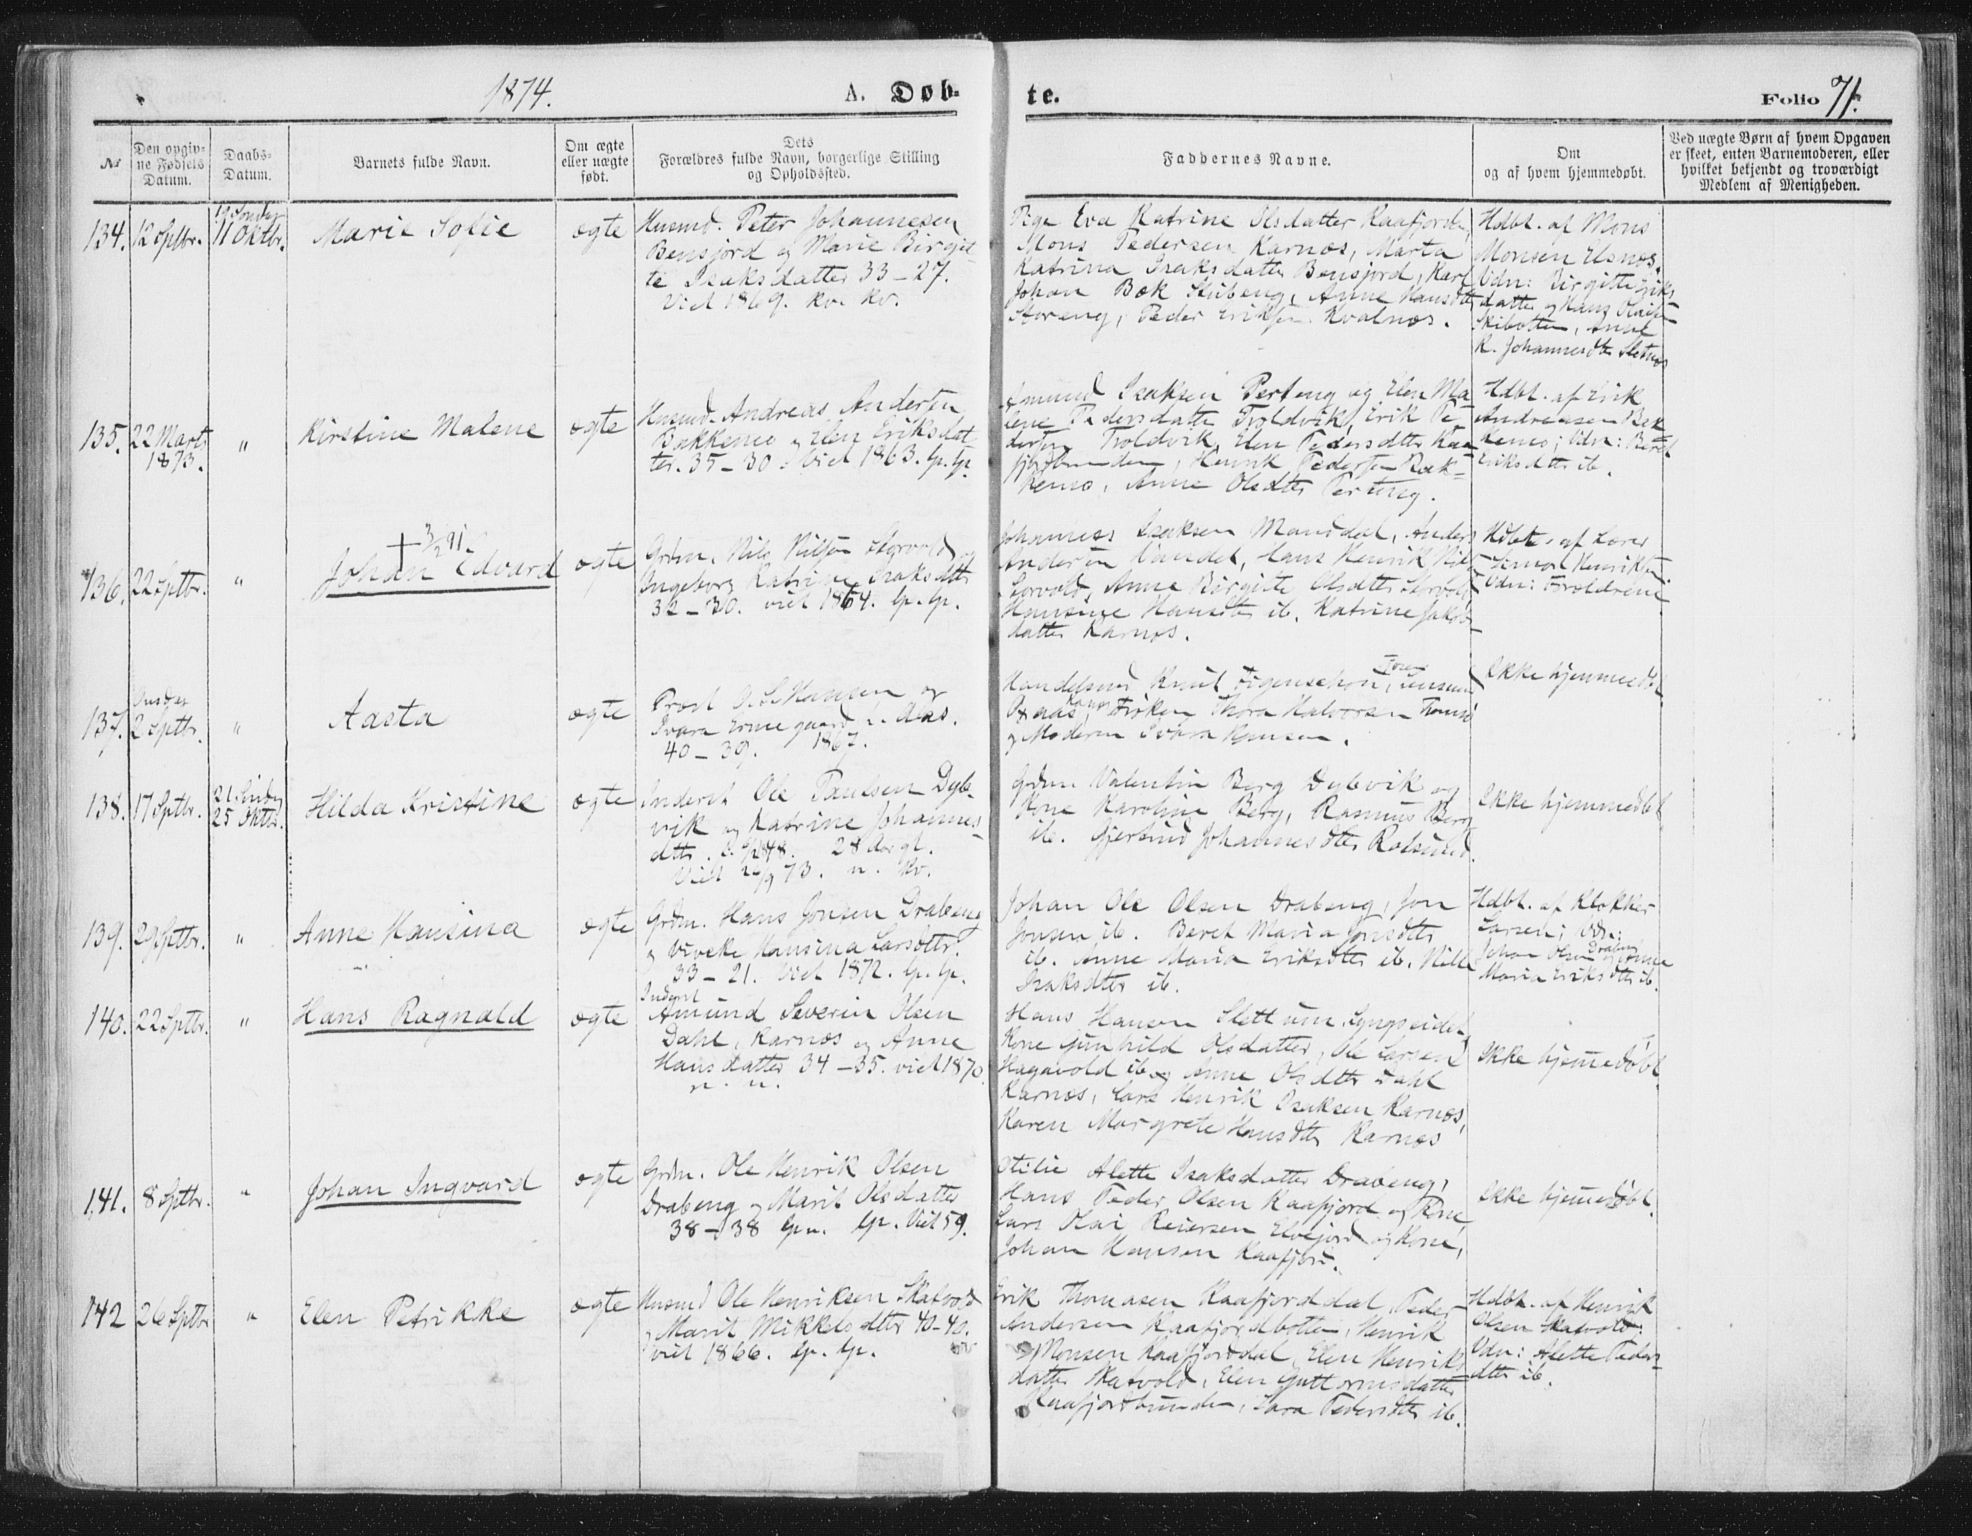 1874.
A. Døb-
te.
Folio 71.
No
Den opgiv-
ne Fødsels
Datum.
Daabs-
Datum.
Barnets fulde Navn.
Om ægte
eller uægte
født.
Dets
Forældres fulde Navn, borgerlige Stilling
og Opholdssted.
Faddernes Navne.
Om
og af hvem hjemmedøbt.
Ved uægte Børn af hvem Opgaven
er skeet, enten Barnemoderen, eller
hvilket bekjendt og troværdigt
Medlem af Menigheden.
134. 12 Sptbr.
11 Oktbr.
Marie Sofie
ægte
Husmd. Peter Johannesen
Bensjord og Marie Birgit-
te Isaksdatter 33-27.
Viet 1869. kv. kv.
Pige Eva Katrine Olsdatter Kaafjorden,
Mons Pedersen Karnæs, Marta
Katrina Isaksdatter Bensjord, Karl
Johan Bæk Stubeng, Anne Hansdtr
Storeng, Peder Kvalnæs.
Hdbt. af Mons
Monsen Elsnæs.
Vdn: Birgitte
datter og Hans
Skibotten, Anne
K. Johannesdtr
135. 22 Marts
1873.
"
Kirstine Malene
ægte
Husmd. Andreas Andersen
Bakkemo og Elen Eriksdat-
ter. 35-30. Viet 1863. lp. lp.
Amund Isaksen Perteng og Elen Ma-
lene Pedersdatter Troldvik, Erik Pe-
dersen Troldvik, Elen Pedersdtr Kaa-
fjordbunden, Henrik Pedersen Bak-
kemo, Anne Olsdtr Perteng.
Hdbt. af Erik
Andreasen Bak-
kemo; Vdn: Beret
Eriksdtr ib.
136. 22 Sptbr.
"
+ 3/2 91.
Johan Edvard
ægte
Grdm. Nils Nilsen Storvold og
Ingeborg Katrine Isaksdtr
32-30. viet 1864. lp. lp.
Johannes Isaksen Manddal, Anders
Andersen Hans Henrik
Storvold, Anne Birgitte Olsdtr Storvold
Hansine Hansdtr ib. Katrine Jakobs-
datter Karnæs.
Hdbt. af Lærer
Simon Henriksen
Vdn: Forældrene
137.
Onsdag
2 Sptbr.
"
Aasta
ægte
Provst Hansen og
Ivara f. Aas.
40-39. 1867.
Handelsmd Knut Figenschou,
Aas, Frøken Thora Halvorsen Tromsø
og Moderen Ivara Hansen.
Ikke hjemmedøbt
138. 17 Sptbr.
25 Oktbr.
Hilda Kristine
ægte
Inderst Ole Paulsen Dybe-
vik og Katrine Johannes-
dtr. 28 Aar gl.
Viet 73. n. kv.
Grdm. Valentin Berg Dybvik og
Kone Karoline Berg, Rasmus Berg
ib. Gjertrud Johannesdtr Rotsund.
Ikke hjemmedøbt
139. 29 Sptbr.
"
Anne Hansina
ægte
Grdm. Hans Jonsen Drabeng
og Viveke Hansina Larsdtr.
33-21. Viet 1872. lp. lp.
Johan Ole Olsen Drabeng, Jon
Jonsen ib. Beret Maria Jonsdtr
ib. Anne Maria Eriksdtr ib. Nille
Isaksdtr ib.
Hdbt. af Klokker
Larsen; Vdn:
Johan Olsen Drabeng og Anne
Maria Eriksdtr ib.
140. 22 Sptbr.
"
Hans Ragnald
ægte
Inderst
Amund Severin Olsen
Dahl, Karnæs og Anne
Hansdatter 34-35. viet 1870.
n. n.
Hans Hansen Slettum Lyngseidet,
Kone Gunhild Olsdatter, Ole Larsen
Hagavold ib. og Anne Olsdtr Dahl
Karnæs, Lars Henrik Isaksen Karnæs,
Karen Margrete Hansdtr Karnæs
Ikke hjemmedøbt.
141. 8 Sptbr.
"
Johan Ingvard
ægte
Grdm. Ole Henrik Olsen
Drabeng og Marit Olsdatter
38-38 lp. Viet 59.
Otilie Alette Isaksdatter Drabeng,
Hans Peder Olsen Kaafjord og Kone,
Lars Olai Reiersen Elvejord og Kone,
Johan Hansen Kaafjord.
Ikke hjemmedøbt.
142 26 Sptbr
"
Elen Petrikke
ægte
Husmd Ole Henriksen Skatvold
og Marit Mikkelsdtr 40-40.
viet 1866. lp. lp.
Erik Thomasen Kaafjorddal, Peder
Andersen Kaafjordbotten, Henrik
Monsen Kaafjorddal, Elen Henriks-
datter Skatvold, Elen Guttormsdatter
Kaafjordbunden, Sara Pedersdtr ib.
Hdbt. af Henrik
Olsen Skatvold:
Vdn: Alette Peders-
dtr ib.